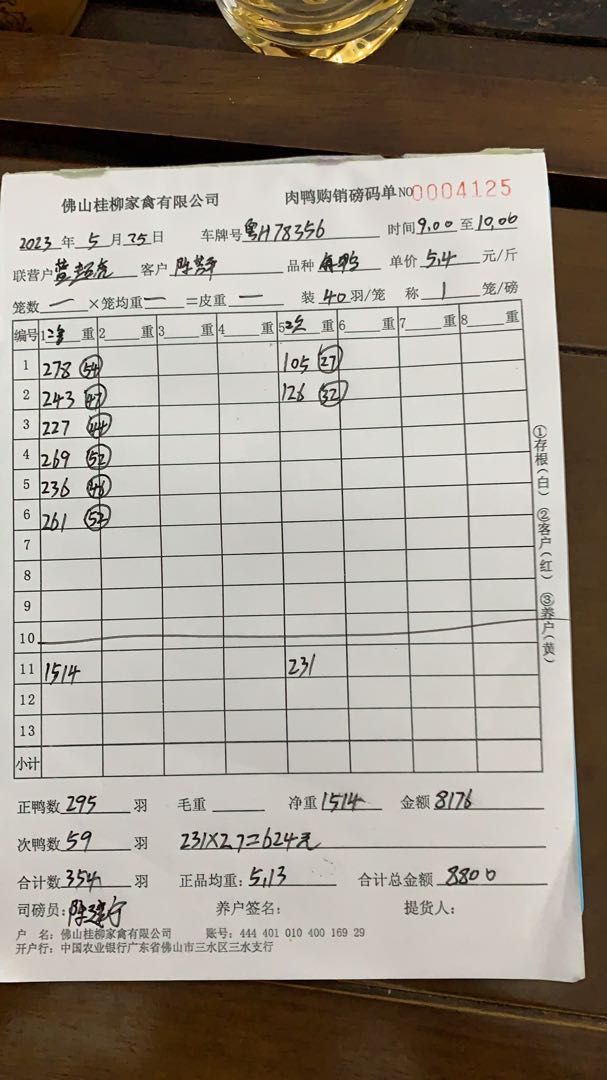 佛山桂柳家禽有限公司 肉鸭购销磅码单 NO 0004125
2023 年 5 月 25 日 车牌号 粤H78356 时间 9.00 至 10.00
联营户 客户 品种 单价 5.4 元/斤
笼数 一 ×笼均重 一 =皮重 一 装 40 羽/笼 称 1 笼/磅
编号 1 重 2 重 3 重 4 重 5 次 重 6 重 7 重 8 重
1 278 54 105 27
2 243 47 126 32
3 227 44
4 269 52
5 236 46
6 261 52
7
8
9
10
11 1514 231
12
13
小计
①存根(白) ②客户(红) ③养户(黄)
正鸭数 295 羽 毛重 净重 1514 金额 8176
次鸭数 59 羽 231×2.7=624元
合计数 354 羽 正品均重: 5.13 合计总金额 8800
司磅员: 养户签名: 提货人:
户 名: 佛山桂柳家禽有限公司 账号: 444 401 010 400 169 29
开户行: 中国农业银行广东省佛山市三水区三水支行